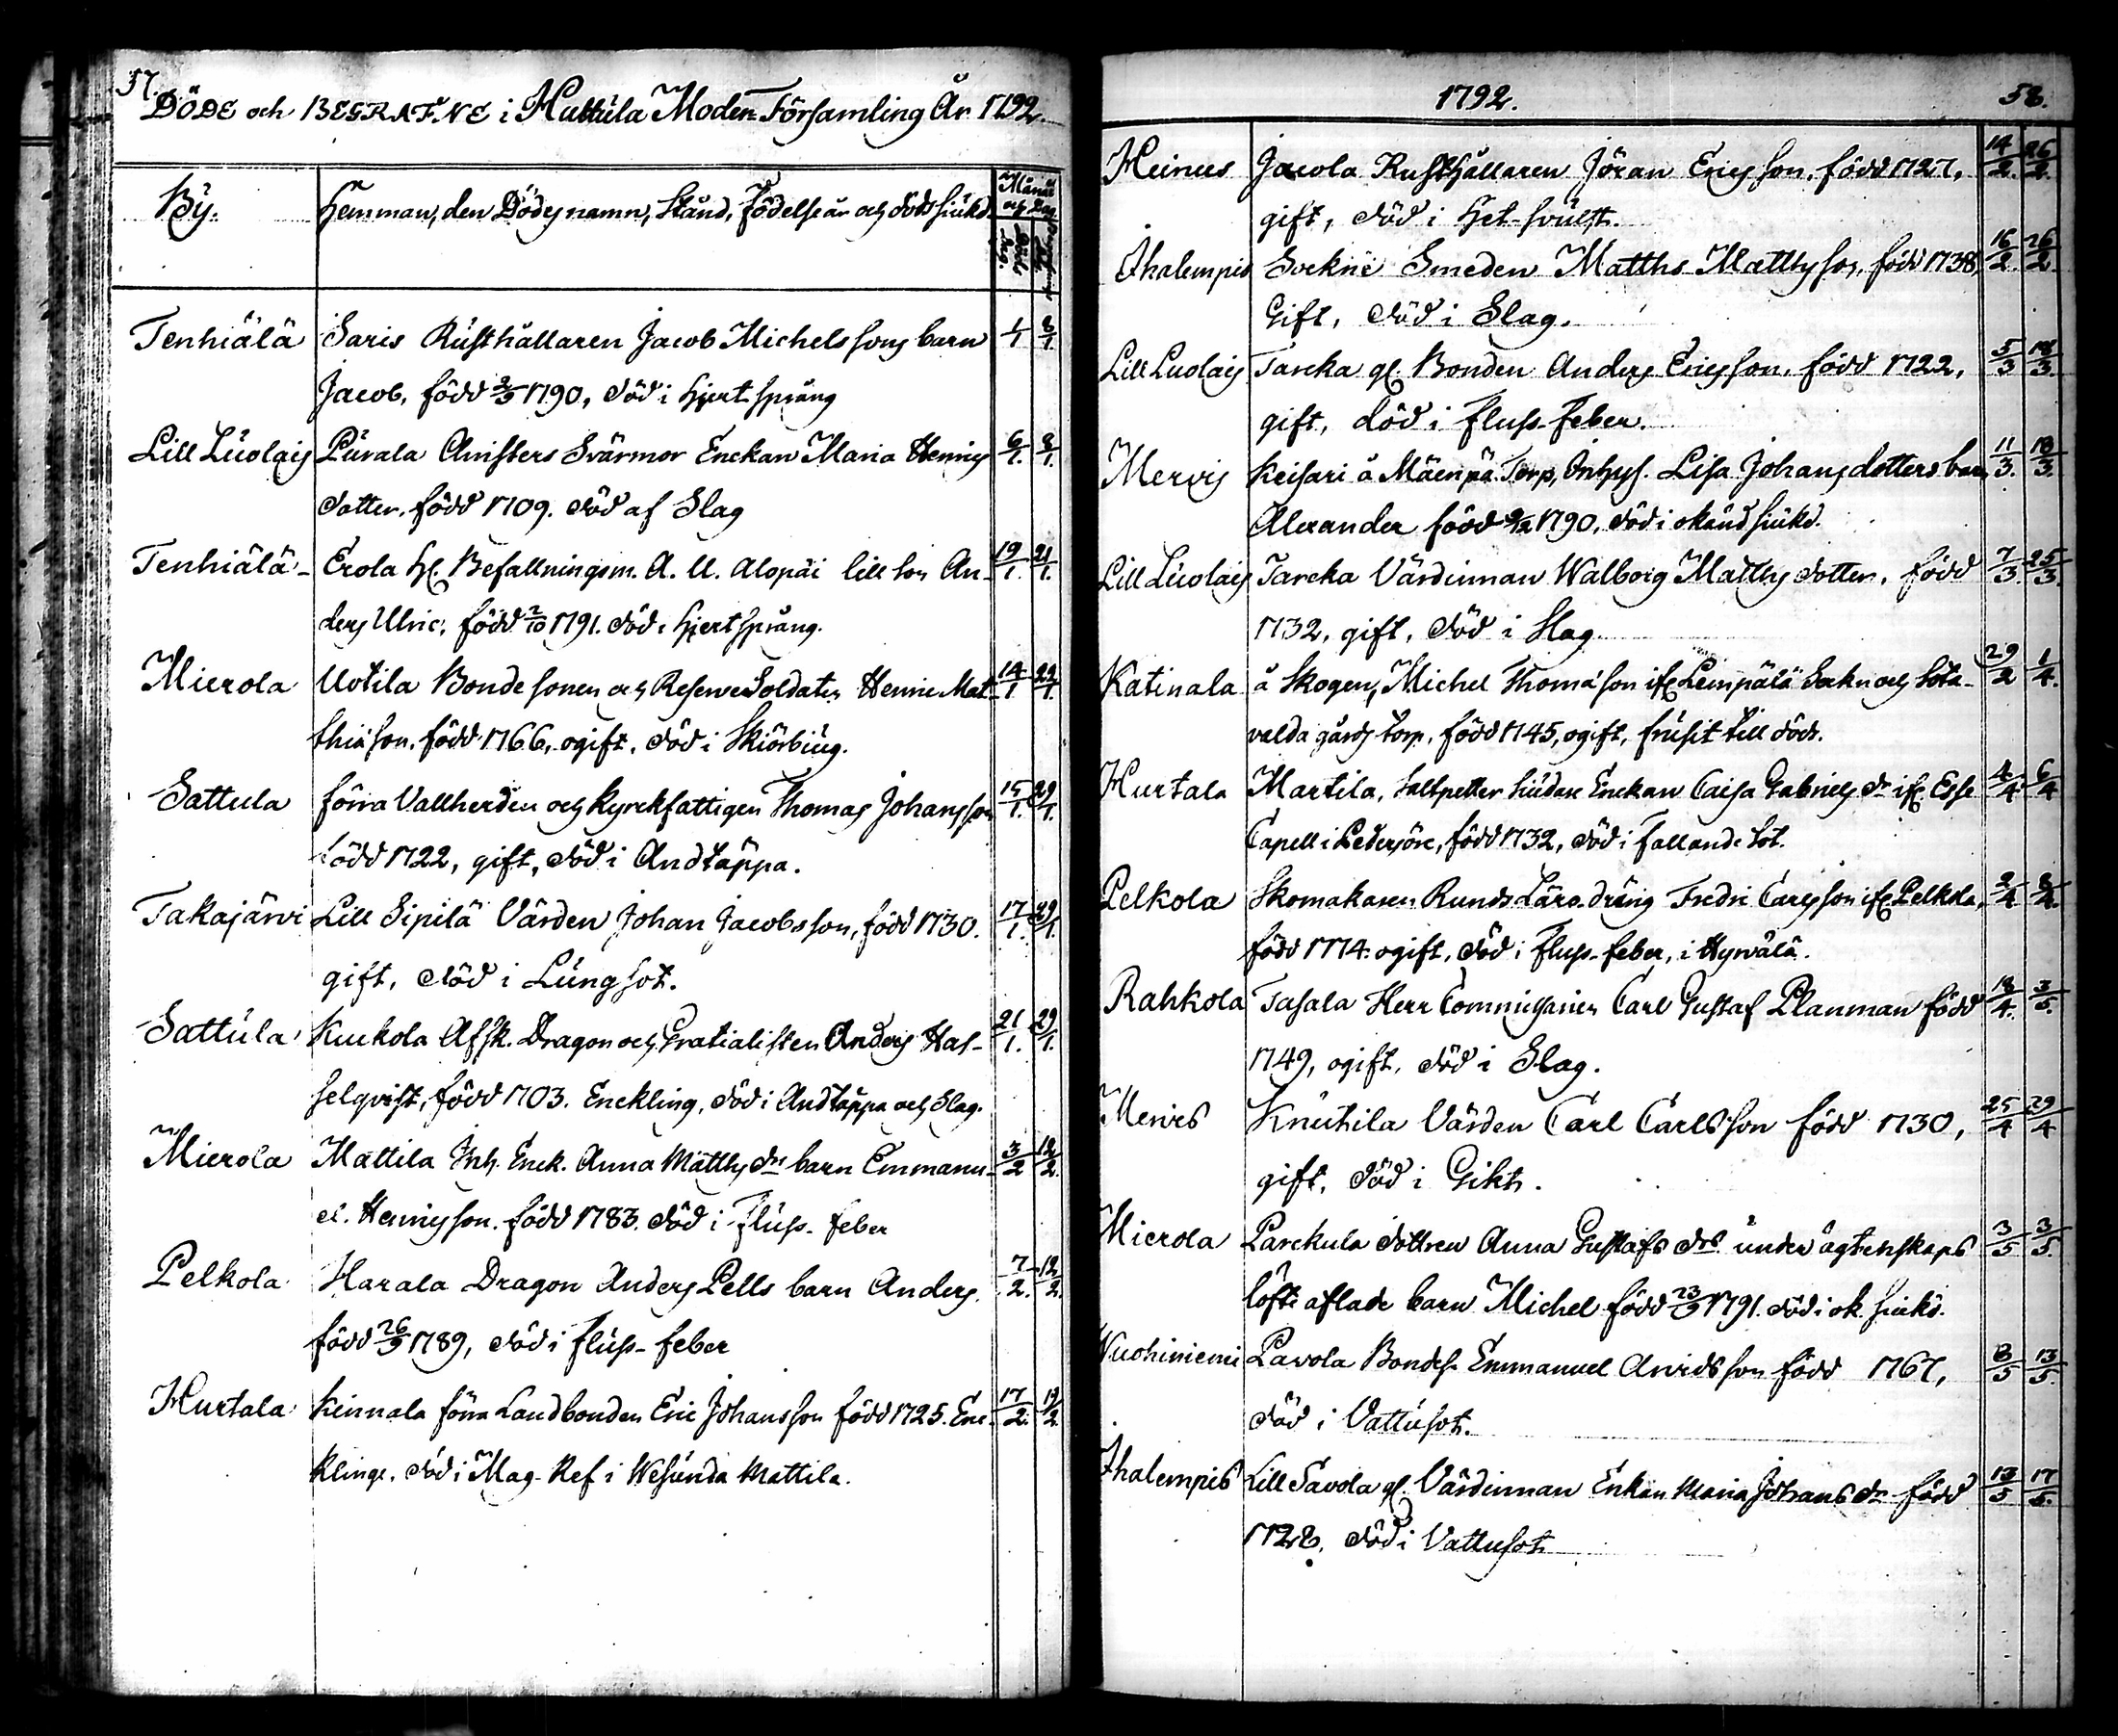 57.
DÖDE och BEGRAFNE i Hattula Moder-Församling År 1792.
By. Hemman, den Dödes namn, Stånd, Födelse år och dödssjukd. Månad och Dag
Tenhiälä Saris Rusthållaren Jacob Michelssons barn 1/1 8/1.
Jacob, född 2/9 1790, död i Hjertsprång
Lill Luolais Purala Arnisters Svärmor Enckan Maria Henrics 6/1. 8/1.
dotter, född 1709. död af Slag
Tenhiälä Erola Hr. Befallningsm. A. U. Alopäi lill son An- 19/1. 21/1.
ders Ulric, född 2/10 1791. död i Hjertsprång.
Mierola Uotila Bondesonen och Reserve Soldaten Henric Mat- 14/1 22/1.
thiæson, född 1766, ogift, död i Skiörbiug.
Sattula förra Vallherden och kyrckfattigen Thomas Johansson 15/1. 29/1.
född 1722, gift, död i Andtäppa.
Takajärvi Lill Sipilä Värden Johan Jacobsson, född 1730. 17/1. 29/1.
gift, död i Lungsot.
Sattula Kuckola Afsk. Dragon och Gratialisten Anders Has- 21/1. 29/1.
selqvist, född 1703. Enckling, död i Andtäppa och Slag.
Mierola Mattila Inh. Enck. Anna Matthsdrs barn Emmanu- 3/2 12/2.
el. Henricsson. född 1783. död i Fluss-feber
Pelkola Harala Dragon Anders Pells barn Anders. 7/2. 12/2.
född 26/9 1789, död i fluss-feber
Hurtala Keinnala förra Landbonden Eric Johansson född 1725. Enc- 17/2. 19/2.
klinge, död i Mag-Ref i Wesunda Mattila.
1792. 58.
Heinus Jacola Rusthållaren Jöran Ericsson, född 1727, 14/2. 26/2.
gift, död i Het-svulst.
Ihalempis Sockne Smeden Matths Matthsson, född 1738, 16/2. 26/2
Gift, död i Slag.
Lill Luolais Tarcka gl. Bonden Anders Ericsson, född 1722, 5/3 18/3.
gift, död i fluss-feber.
Mervis Keisari å Mäenpä Torp, Inhys. Lisa Johansdotters barn 11/3. 18/3.
Alexander född 9/12 1790, död i okänd siukd.
Lill Luolais Tarcka Värdinnan Walborg Matthsdotter, född 7/3 25/3.
1732, gift, död i Slag.
Katinala å Skogen, Michel Thomasson ifr. Lempälä Sockn och Sota- 29/2 1/4.
valda gårds torp, född 1745, ogift, frusit till döds.
Hurtala Martila, Saltpetter siudare Enckan Caisa Gabriels dr ifr. Esse 4/4 6/4
Capell i Pedersöre, född 1732, död i fallande sot.
Pelkola Skomakaren Runds Läro dräng Fredric Carlsson ifr. Pelkola, 2/4 8/4.
född 1774. ogift, död i Fluss-feber, i Hyrvälä.
Rahkola Tasala Herr Commissarien Carl Gustaf Planman född 18/4. 3/5.
1749, ogift, död i Slag.
Mervis Knutila Värden Carl Carlsson född 1730, 25/4 29/4
gift, död i Gikt.
Mierola Parckula dottren Anna Gustafs drs under ägtenskaps 3/5 3/5.
löfte aflade barn Michel född 23/9 1791. död i ok. siukd.
Wuohiniemi Pavola Bondes. Emmanuel Arvidsson född 1767, 8/5 13/5.
död i Vattusot.
Ihalempis Lill Savola gl. Värdinnan Enkan Maria Johans dr född 13/5 17/5.
1728, död i Vattusot.